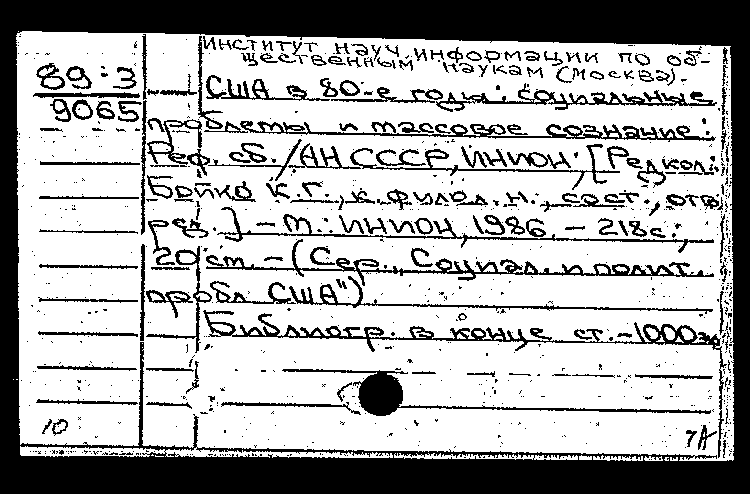 Институт науч. информации по об-
щественным наукам (Москва).
89:3
9065
США в 80-е годы: социальные
проблемы и массовое сознание:
Реф. сб. / АН СССР, ИНИОН; [Редкол.:
Бойко К.Г., к. филол. н., сост., отв.
ред.] – М.: ИНИОН, 1986. – 218 с.;
20 см. – (Сер. „Социал. и полит.
пробл. США").
Библиогр. в конце ст. – 1000 э
10
7А